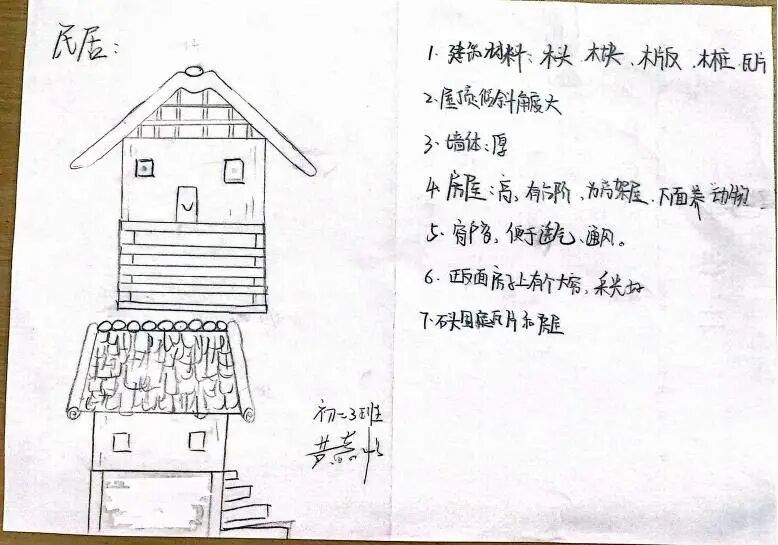 民居:
1. 建筑材料: 木头、木块、木片板、木桩、瓦片
2. 屋顶倾斜角度大
3. 墙体:厚
4. 房屋:高, 有台阶、为高架屋、下面养动物
5. 窗户多, 便于透气、通风。
6. 正反面房子上有个大窗, 采光好
7. 石头固定瓦片和房屋
初二3班